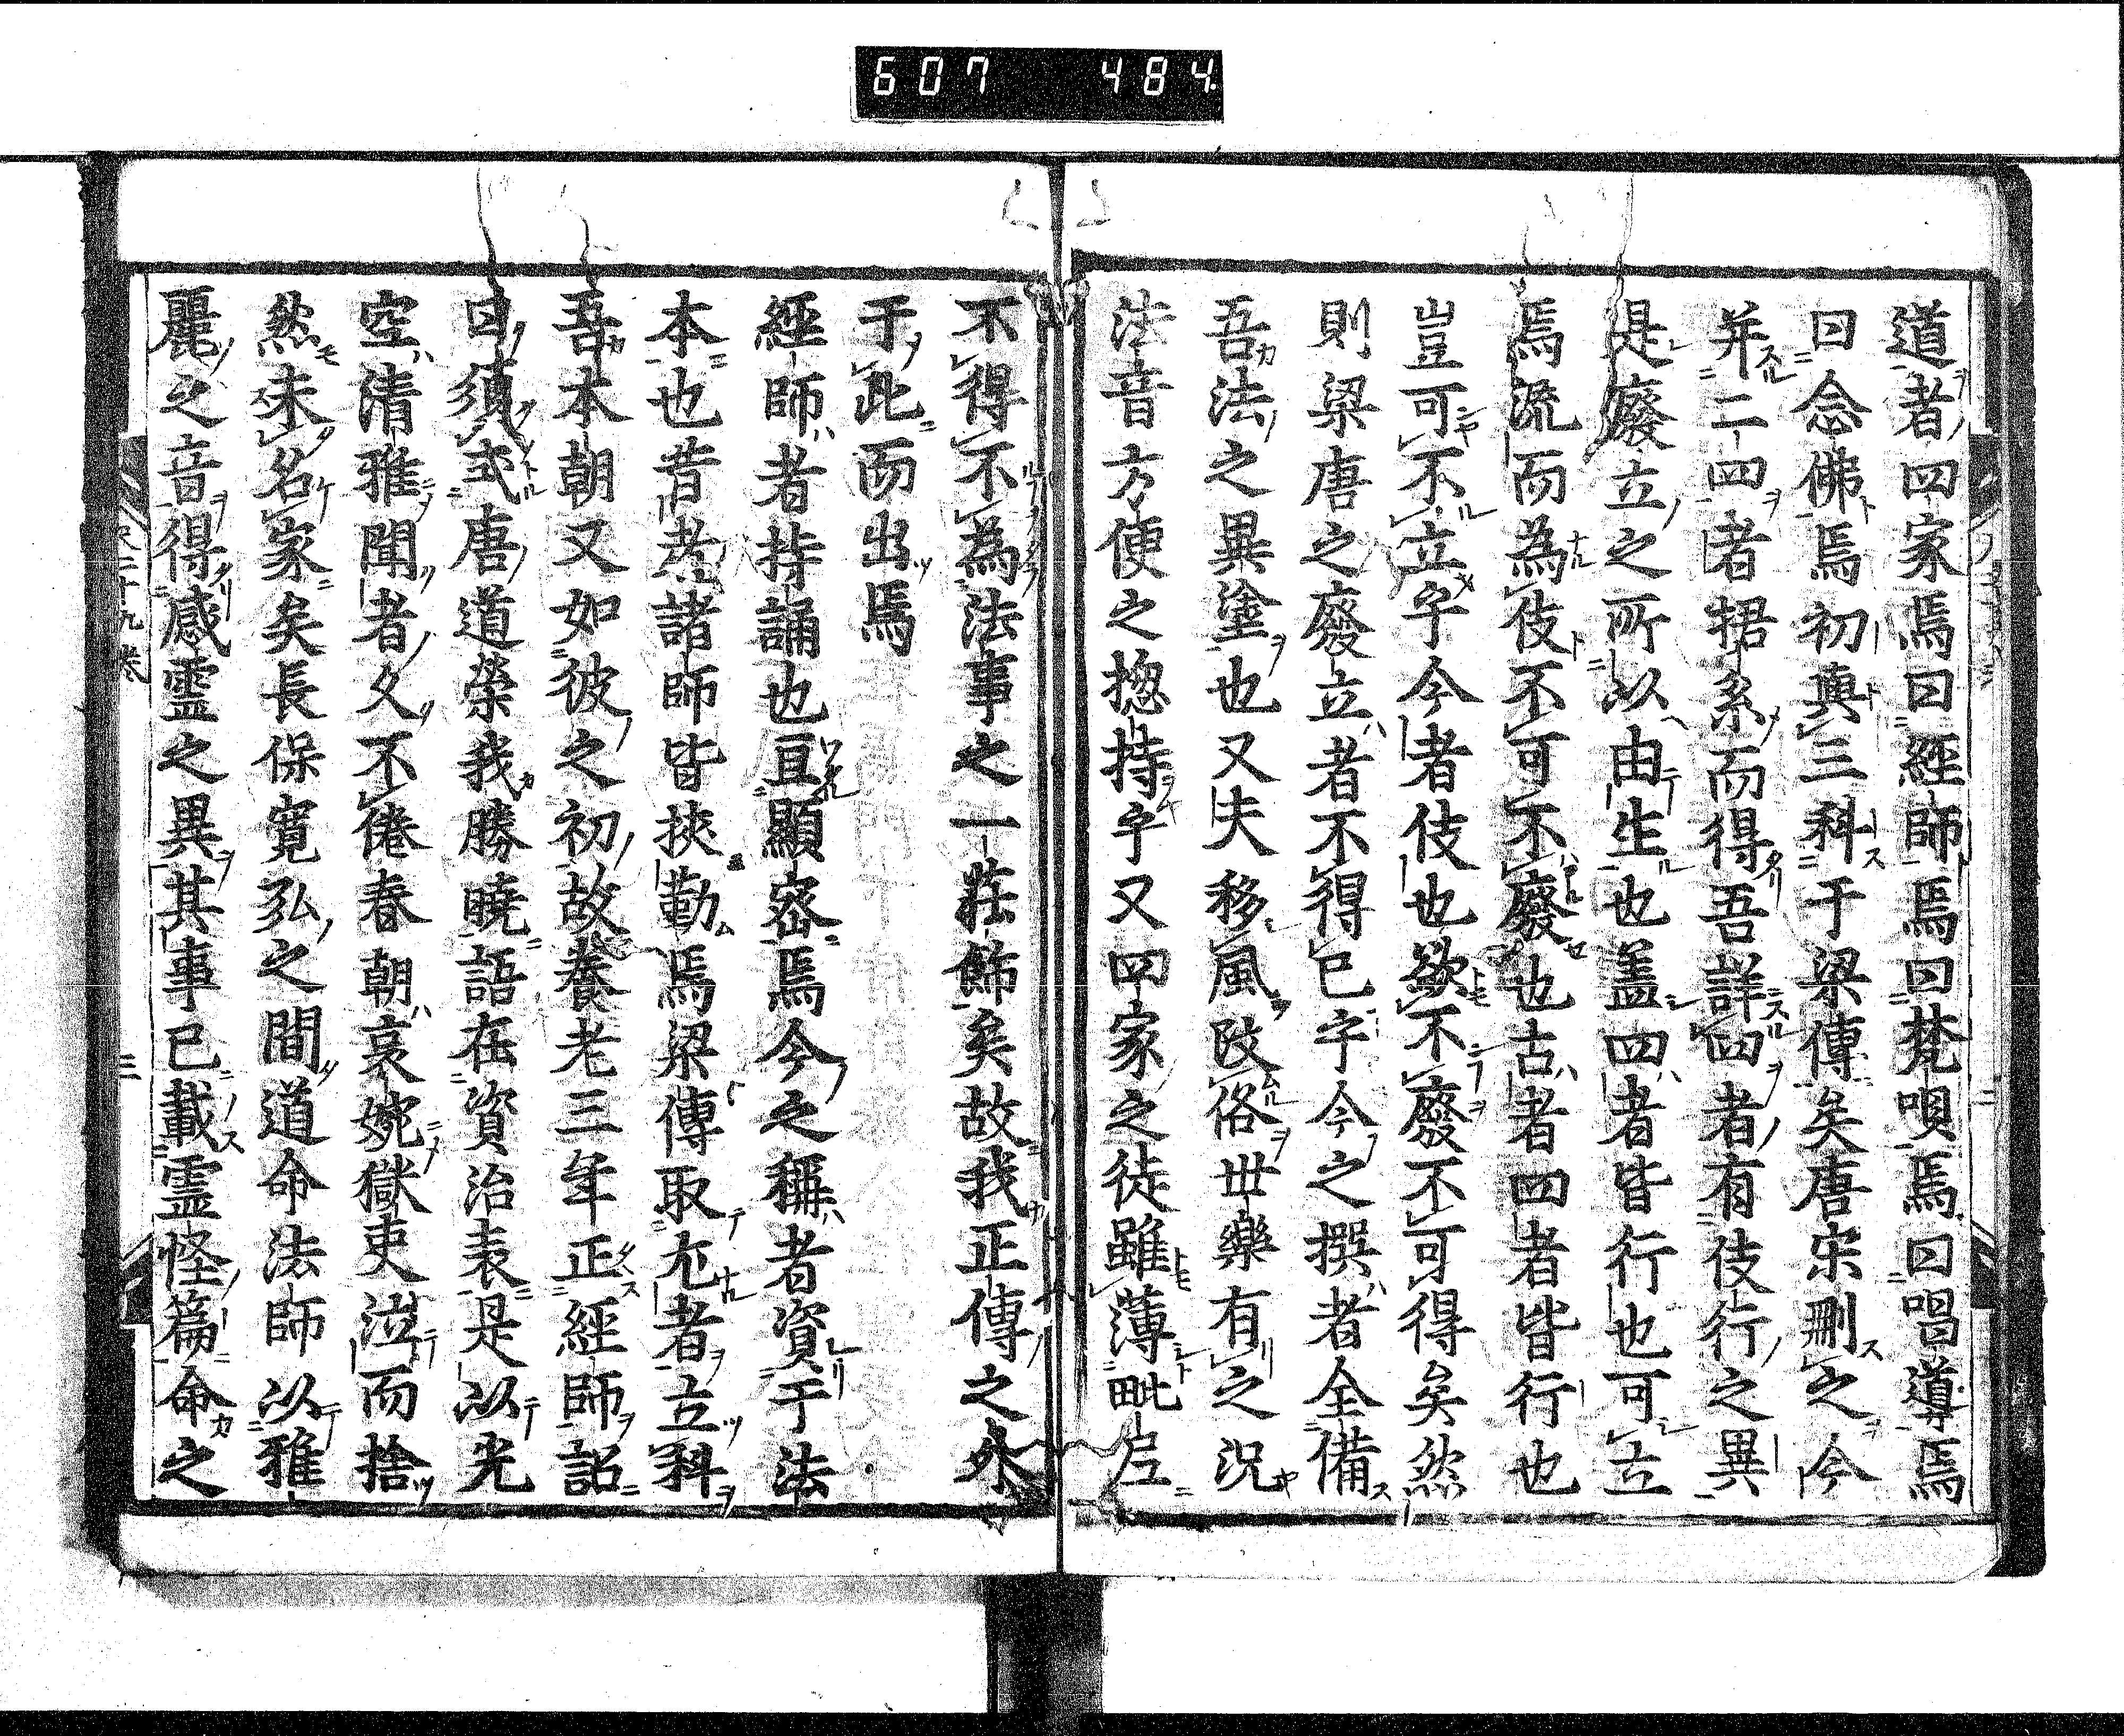 607 484
道者四家焉曰經師焉曰梵唄焉曰唱導焉
曰念佛焉初與三科于梁傳矣唐宋刪之今
并二四者捃系而得吾詳四者有伎行之異
是廢立之所以由生也蓋四者皆行也可立
焉流而為伎不可不廢也古者四者皆行也
豈可不立乎今者伎也欲不廢不可得矣然
則梁唐之廢立者不得已乎今之撰者全備
吾法之異塗也又夫移風改俗世樂有之況
法音方便之揔持乎又四家之徒雖薄毗店
不得不為法事之一莊飾矣故我正傳之外
于此而出焉
經師者持誦也亘顯密焉今之稱者資于法
本也昔者諸師皆挾勤焉梁傳取尤者立科
吾本朝又如彼之初故養老三年正經師詔
曰須式唐道榮我勝曉語在資治表是以光
空清雅聞者久不倦春朝哀婉獄吏泣而捨
然未名家矣長保寬弘之間道命法師以雅
麗之音得感靈之異其事已載靈怪篇命之
二十九卷
二
三